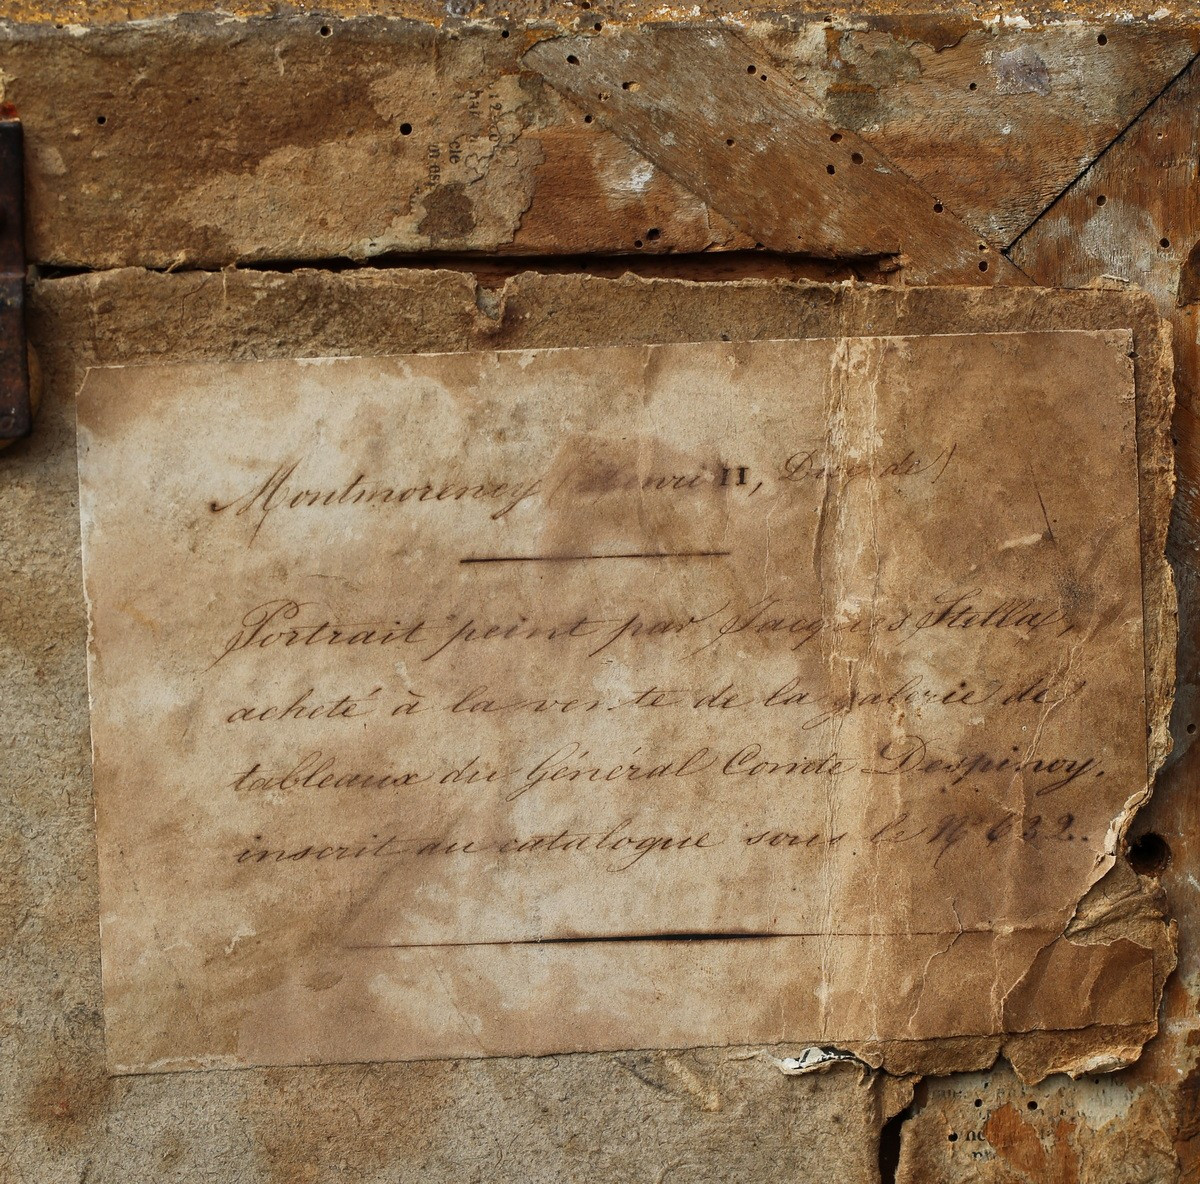 Montmorency (Henri II, Duc de)
Portrait peint par Jacques Stella,
acheté à la vente de la galerie de
tableaux du Général Comte Despinoy,
inscrit au catalogue sous le Nº 632.